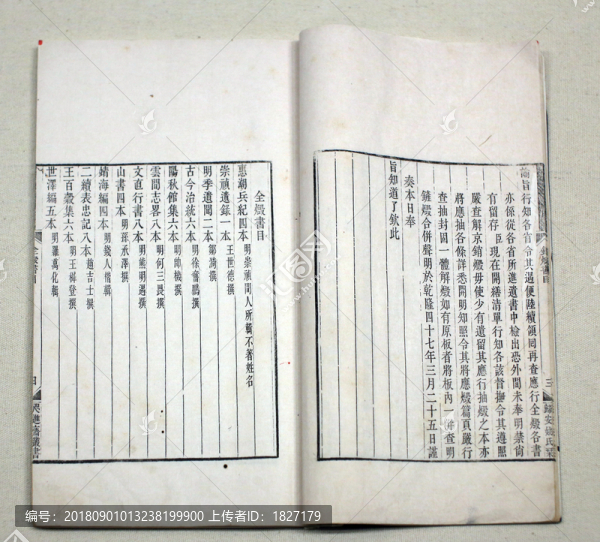 諭旨行知各省令其過便陸續領回再查應行全燬各書
亦係從各省所進遺書中繪出恐外間未奉明禁尚
有留存臣現在開繕清單行知各該督撫令其遵照
嚴查解京銷燬毋使少有遺留其應行抽燬之本亦
將應抽各條詳悉開明知照令其將應燬篇頁嚴行
查抽封固一體解燬如有原板者將板內一併查明
鏟燬合併聲明於乾隆四十七年三月二十五日謹
奏本日奉
旨知道了欽此
三
全燬書目
惠湖兵紀四本 明崇禎間人所輯不著姓名
崇禎遺錄一本 王世德撰
明季遺聞二本 鄒漪撰
古今治統六本 明徐奮鵬撰
陽秋館集六本 明帥機撰
雲間志畧八本 明何三畏撰
文直行書八本 明熊明遇撰
山書四本 明孫承澤撰
靖海編四本 明錢人楷輯
二續表忠記八本 趙吉士撰
王百穀集六本 明王穉登撰
世澤編五本 明羅萬化輯
四
咫進齋叢書
编号：20180901013238199900 上传者ID：1827179